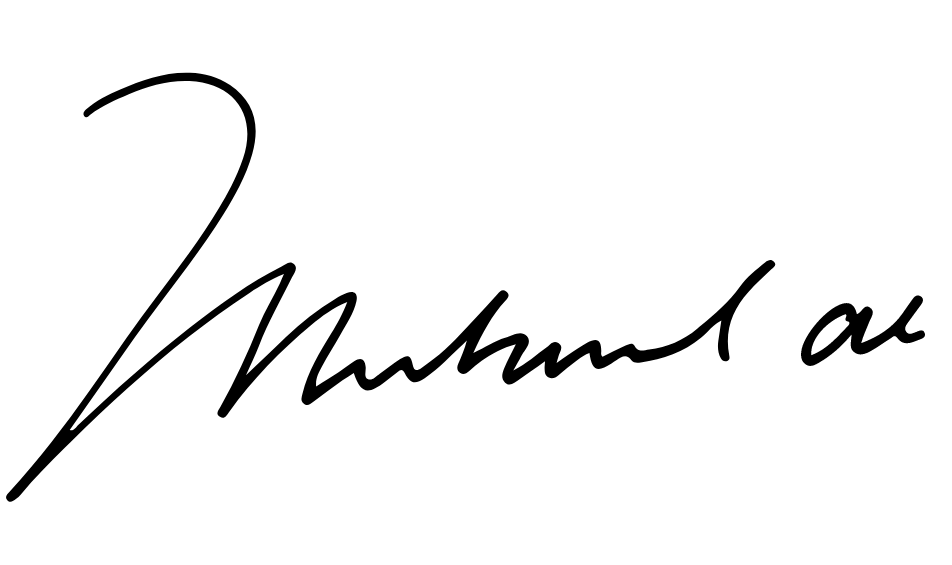 Muhammad Ali